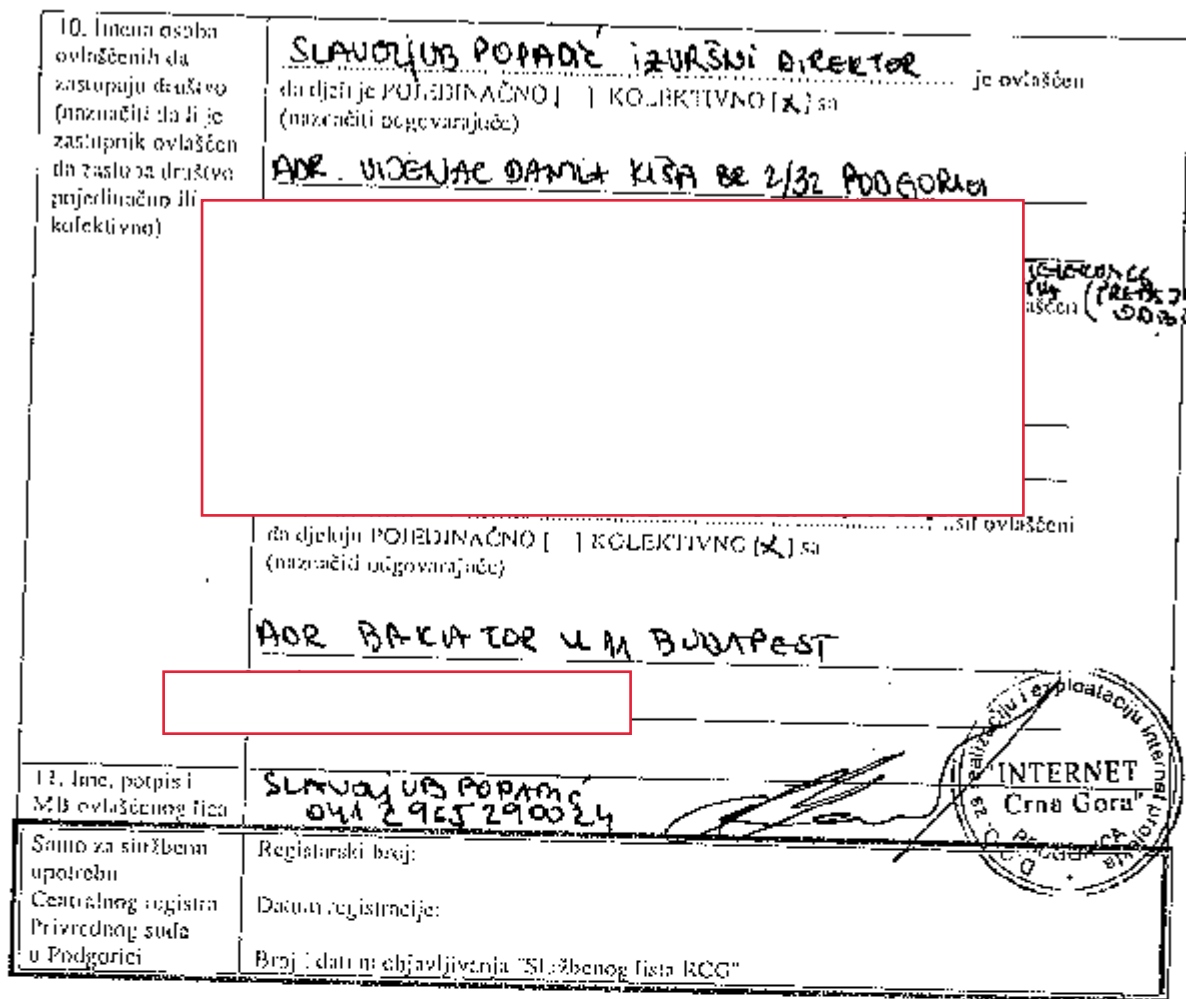 10. Imena osoba
ovlašćenih da
zastupaju društvo
(naznačiti da li je
zastupnik ovlašćen
da zastupa društvo
pojedinačno ili
kolektivno)
SLAVOLJUB POPADIĆ IZVRŠNI DIREKTOR je ovlašćen
da djeluje POJEDINAČNO [ ] KOLEKTIVNO [X] sa
(naznačiti odgovarajuće)
ADR. VIJENAC DANILA KIŠA BR 2/32 PODGORICA
ašćen
su ovlašćeni
da djeluju POJEDINAČNO [ ] KOLEKTIVNO [X] sa
(naznačiti odgovarajuće)
ADR BUDAPEST
11. Ime, potpis i
MB ovlašćenog lica
SLAVOLJUB POPADIĆ
041 2965 290024
realizaciju i exploataciju internet projekta
INTERNET
Crna Gora"
PODGORICA
D.O.O. za
Samo za službenu
upotrebu
Centralnog registra
Privrednog suda
u Podgorici
Registarski broj:
Datum registracije:
Broj i datum objavljivanja "Službenog lista RCG"